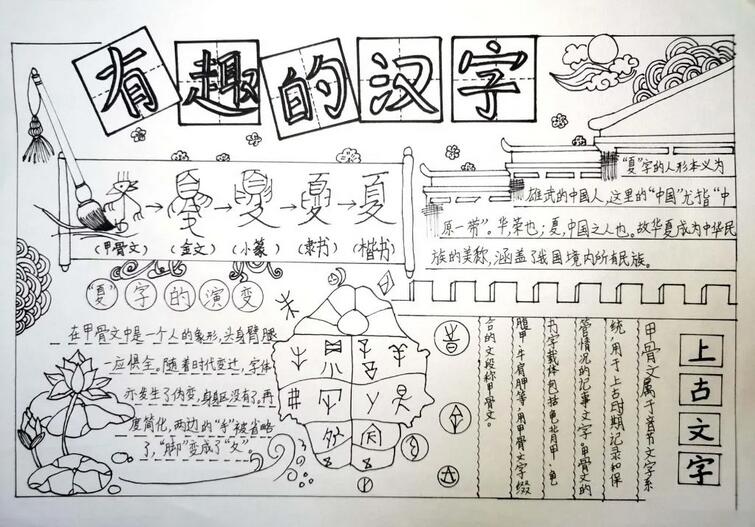 有趣的汉字
(甲骨文)
(金文)
(小篆)
(隶书)
夏
(楷书)
“夏”字的人形本义为
雄武的中国人,这里的“中国”尤指“中
原一带”。华,荣也;夏,中国之人也。故华夏成为中华民
族的美称,涵盖了我国境内所有民族。
“夏”字的演变
在甲骨文中是一个人的象形,头身臂腿
一应俱全。随着时代变迁,字体
亦发生了伪变,身躯没有了,再
度简化,两边的“手”被省略
了,“脚”变成了“夂”。
上古文字
甲骨文属于音节文字系
统,用于上古时期记录和保
管情况的记事文字。甲骨文的
书字载体包括龟背甲、龟
腹甲、牛肩胛等,用甲骨文字缀
合的文段称甲骨文。